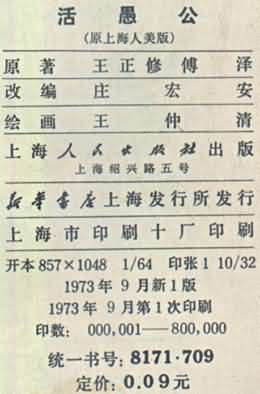 活愚公
(原上海人美版)
原著 王正修 傅泽
改编 庄宏安
绘画 王仲清
上海人民出版社出版
上海绍兴路五号
新华书店上海发行所发行
上海市印刷十厂印刷
开本 857×1048 1/64 印张 1 10/32
1973年9月新1版
1973年9月第1次印刷
印数: 000,001—800,000
统一书号: 8171·709
定价: 0.09元